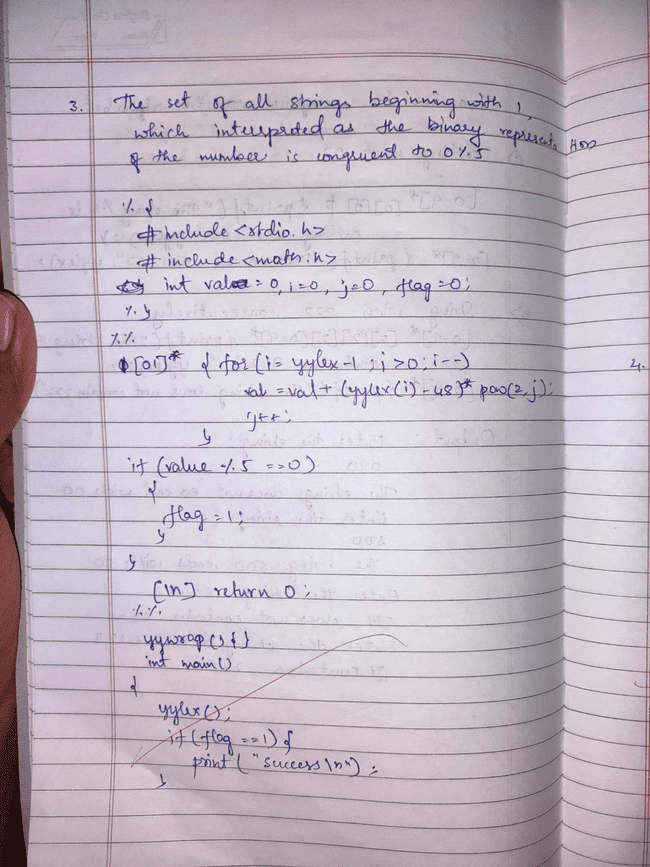 3. The set of all strings beginning with 1,
which interepreted as the binary representation
of the number is congruent to 0 % 5
% {
# include <stdio.h>
# include <math.h>
int val = 0, i=0, j=0, flag=0;
% }
%%
[01]* { for (i= yylex-1 ; i>0; i--)
val = val + (yylex(i) - 48)* pow(2, j);
j++;
}
if (value % 5 ==0)
{
flag = 1;
}
}
[\n] return 0;
%%
yywrap () { }
int main()
{
yylex();
if (flag ==1) {
print ( "success \n") ;
}
4.